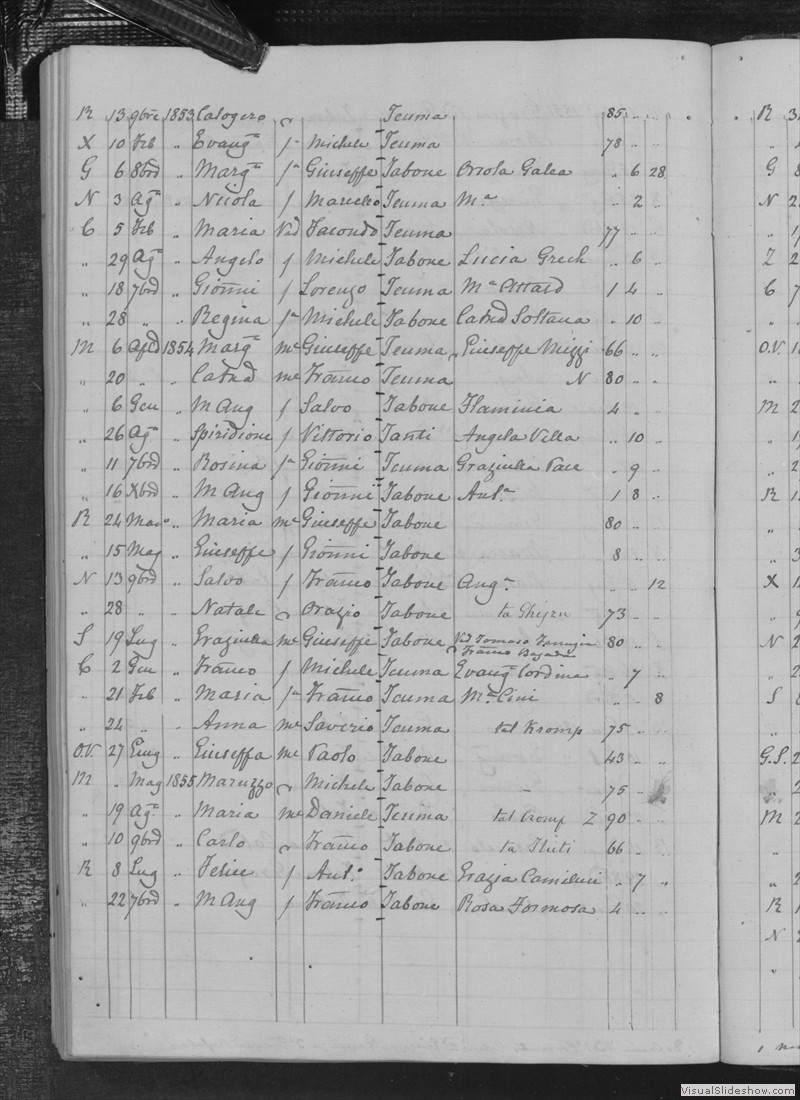 R 13 9bre 1853 Calogero Teuma 85 „ „
X 10 Feb „ Evang.a f.a Michele Teuma 78 „ „
G 6 8bre „ Marg.a f.a Giuseppe Tabone Orsola Galea „ 6 28
N 3 Ag.o „ Nicola f Marcello Teuma M.a „ 2 „
C 5 Feb „ Maria Ved Facondo Teuma 77 „ „
„ 29 Ag.o „ Angelo f Michele Tabone Lucia Grech „ 6 „
„ 18 7bre „ Gio͠nni f Lorenzo Teuma M.a Attard 1 4 „
„ 28 „ „ Regina f.a Michele Tabone Catnd Soltana „ 10 „
M 6 1854 Marg.a me Giuseppe Teuma Giuseppe Mizzi 66 „ „
„ 20 „ „ Catnd me Franco Teuma N 80 „ „
„ 6 Gen „ M Ang f Salvo Tabone Flaminia 4 „ „
„ 26 Ag.o „ Spiridione f Vittorio Tanti Angela Vella „ 10 „
„ 11 7bre „ Rosina f.a Gio͠nni Teuma Graziulla Pace „ 9 „
„ 16 Xbre „ M Ang f Gio͠nni Tabone Ant.a 1 8 „
R 24 Mar „ Maria me Giuseppe Tabone 80 „ „
„ 15 Mag „ Giuseppe f Gio͠nni Tabone 8 „ „
N 13 9bre „ Salvo f Franco Tabone Ang.a „ „ 12
„ 28 „ „ Natale Orazio Tabone ta Ghizu 73 „ „
S 19 Lug „ Graziulla me Giuseppe Tabone Vid Tomaso Farrugia 80 „ „
Franco
C 2 Gen „ Franco f Michele Teuma Evang.a Cordina „ 7 „
„ 21 Feb „ Maria f.a Franco Teuma M.a Cini „ „ 8
„ 24 „ „ Anna me Saverio Teuma tal Kromp 75 „ „
O.V. 27 Giug „ Giuseppa me Paolo Tabone 43 „ „
M „ Mag 1855 Maruzzo Michele Tabone - 75 „
„ 19 Ag.o „ Maria me Daniele Teuma tal Cromp Z 90 „ „
„ 10 9bre „ Carlo Franco Tabone ta 66 „ „
R 8 Lug „ Felice f Ant.o Tabone Grazia Camilleri „ 7 „
„ 22 7bre „ M Ang f Franco Tabone Rosa Formosa 4 „ „
R
G
N
Z
C
O.V.
M
R
X
N
S
G.S.
M
R
N
VisualSlideshow.com